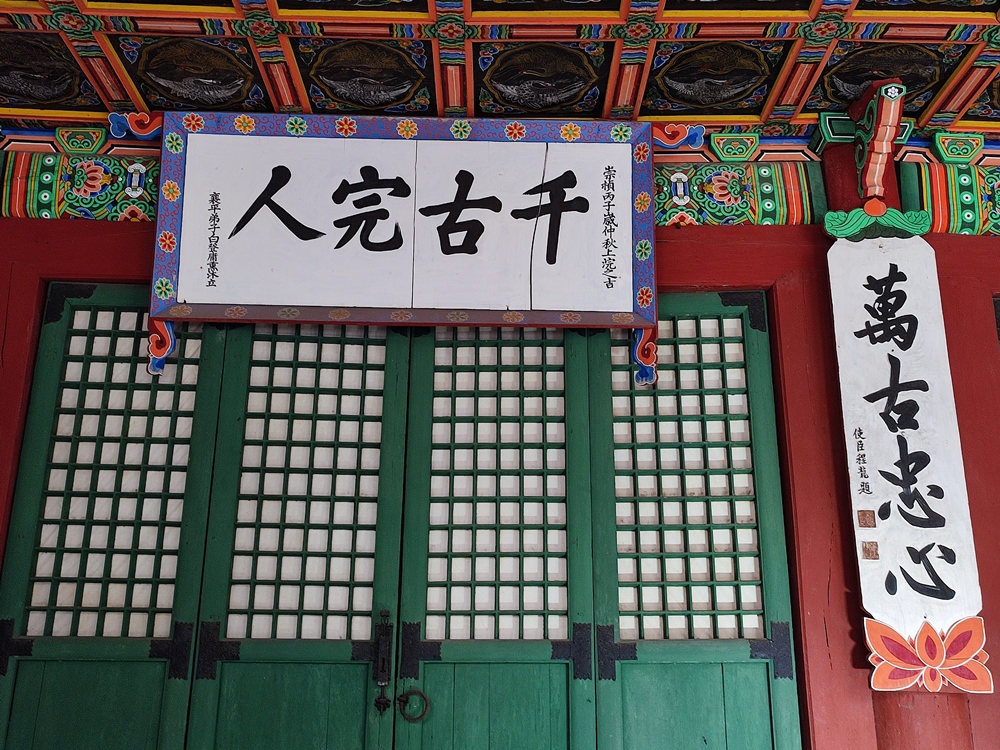 崇禎丙子歲仲秋上浣之吉
千古完人
襄平弟子白登庸熏沐立
萬古忠心
使臣程龍題